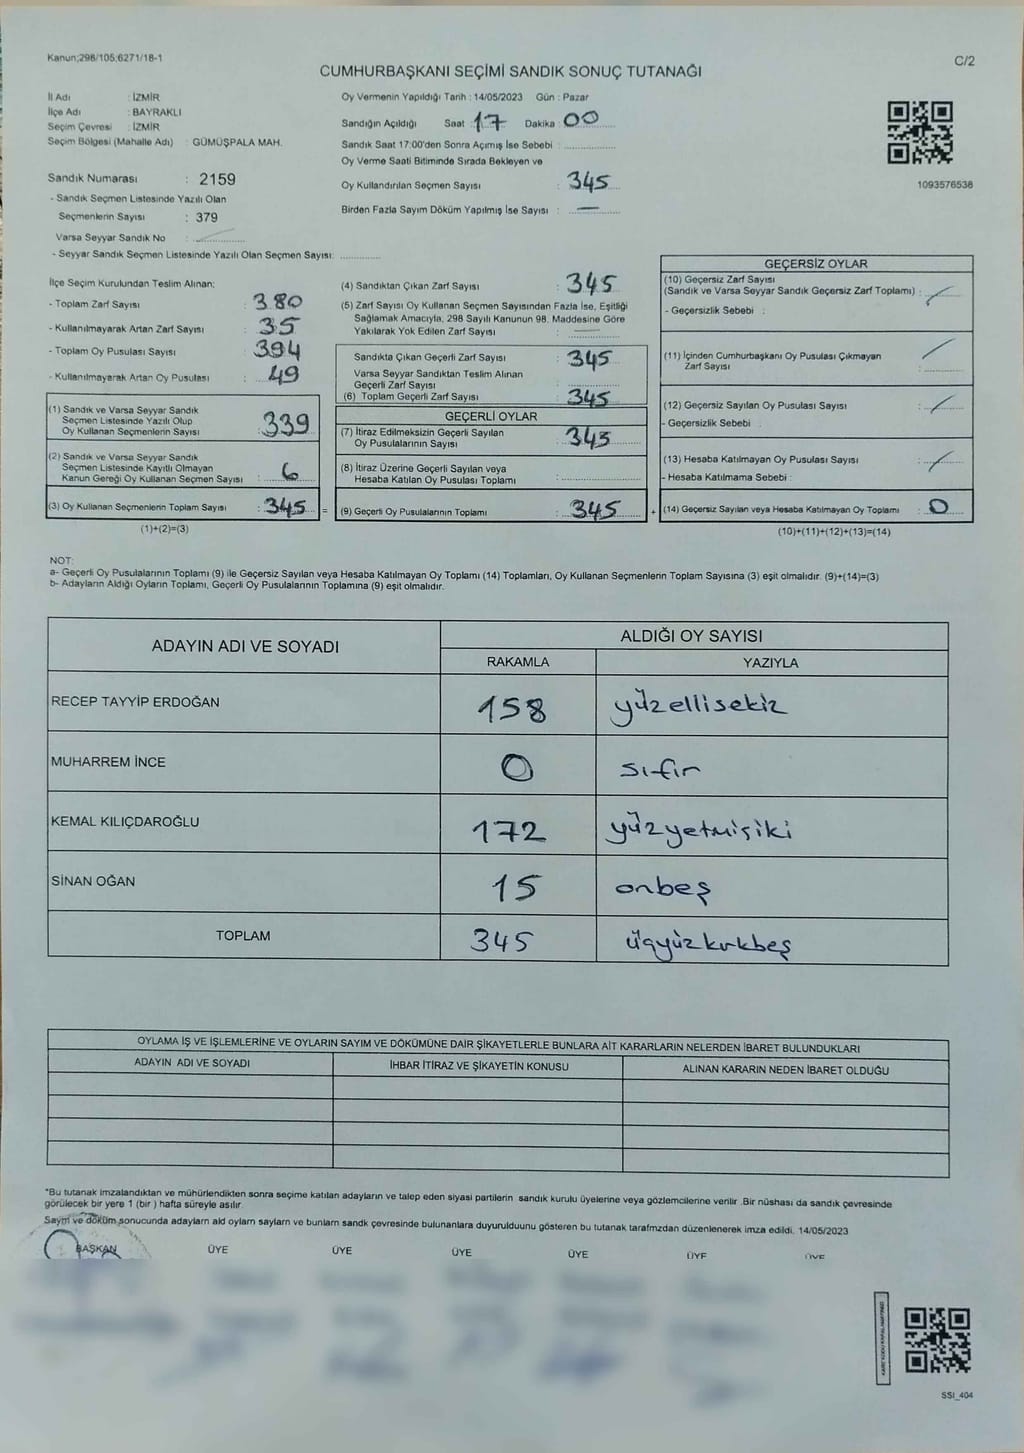 Kanun;298/105;6271/18-1
C/2
CUMHURBAŞKANI SEÇİMİ SANDIK SONUÇ TUTANAĞI
İl Adı : İZMİR
İlçe Adı : BAYRAKLI
Seçim Çevresi : İZMİR
Seçim Bölgesi (Mahalle Adı) : GÜMÜŞPALA MAH.
Sandık Numarası : 2159
- Sandık Seçmen Listesinde Yazılı Olan
Seçmenlerin Sayısı : 379
Varsa Seyyar Sandık No :
- Seyyar Sandık Seçmen Listesinde Yazılı Olan Seçmen Sayısı:
Oy Vermenin Yapıldığı Tarih : 14/05/2023 Gün : Pazar
Sandığın Açıldığı Saat : 17 Dakika : 00
Sandık Saat 17:00'den Sonra Açımış İse Sebebi :
Oy Verme Saati Bitiminde Sırada Bekleyen ve
Oy Kullandırılan Seçmen Sayısı : 345
Birden Fazla Sayım Döküm Yapılmış İse Sayısı : —
1093576538
İlçe Seçim Kurulundan Teslim Alınan;
- Toplam Zarf Sayısı : 380
- Kullanılmayarak Artan Zarf Sayısı : 35
- Toplam Oy Pusulası Sayısı : 394
- Kullanılmayarak Artan Oy Pusulası : 49
(1) Sandık ve Varsa Seyyar Sandık
Seçmen Listesinde Yazılı Olup
Oy Kullanan Seçmenlerin Sayısı : 339
(2) Sandık ve Varsa Seyyar Sandık
Seçmen Listesinde Kayıtlı Olmayan
Kanun Gereği Oy Kullanan Seçmen Sayısı : 6
(3) Oy Kullanan Seçmenlerin Toplam Sayısı : 345 =
(1)+(2)=(3)
(4) Sandıktan Çıkan Zarf Sayısı : 345
(5) Zarf Sayısı Oy Kullanan Seçmen Sayısından Fazla İse, Eşitliği
Sağlamak Amacıyla, 298 Sayılı Kanunun 98. Maddesine Göre
Yakılarak Yok Edilen Zarf Sayısı : —
Sandıkta Çıkan Geçerli Zarf Sayısı : 345
Varsa Seyyar Sandıktan Teslim Alınan
Geçerli Zarf Sayısı :
(6) Toplam Geçerli Zarf Sayısı : 345
GEÇERLİ OYLAR
(7) İtiraz Edilmeksizin Geçerli Sayılan
Oy Pusulalarının Sayısı : 345
(8) İtiraz Üzerine Geçerli Sayılan veya
Hesaba Katılan Oy Pusulası Toplamı :
(9) Geçerli Oy Pusulalarının Toplamı : 345 +
GEÇERSİZ OYLAR
(10) Geçersiz Zarf Sayısı
(Sandık ve Varsa Seyyar Sandık Geçersiz Zarf Toplamı) : /
- Geçersizlik Sebebi :
(11) İçinden Cumhurbaşkanı Oy Pusulası Çıkmayan
Zarf Sayısı : /
(12) Geçersiz Sayılan Oy Pusulası Sayısı : /
- Geçersizlik Sebebi :
(13) Hesaba Katılmayan Oy Pusulası Sayısı : /
- Hesaba Katılmama Sebebi :
(14) Geçersiz Sayılan veya Hesaba Katılmayan Oy Toplamı : 0
(10)+(11)+(12)+(13)=(14)
NOT:
a- Geçerli Oy Pusulalarının Toplamı (9) ile Geçersiz Sayılan veya Hesaba Katılmayan Oy Toplamı (14) Toplamları, Oy Kullanan Seçmenlerin Toplam Sayısına (3) eşit olmalıdır. (9)+(14)=(3)
b- Adayların Aldığı Oyların Toplamı, Geçerli Oy Pusulalarının Toplamına (9) eşit olmalıdır.
ADAYIN ADI VE SOYADI
ALDIĞI OY SAYISI
RAKAMLA YAZIYLA
RECEP TAYYİP ERDOĞAN 158 yüzellisekiz
MUHARREM İNCE 0 sıfır
KEMAL KILIÇDAROĞLU 172 yüzyetmişiki
SİNAN OĞAN 15 onbeş
TOPLAM 345 üçyüzkırkbeş
OYLAMA İŞ VE İŞLEMLERİNE VE OYLARIN SAYIM VE DÖKÜMÜNE DAİR ŞİKAYETLERLE BUNLARA AİT KARARLARIN NELERDEN İBARET BULUNDUKLARI
ADAYIN ADI VE SOYADI İHBAR İTİRAZ VE ŞİKAYETİN KONUSU ALINAN KARARIN NEDEN İBARET OLDUĞU
*Bu tutanak imzalandıktan ve mühürlendikten sonra seçime katılan adayların ve talep eden siyasi partilerin sandık kurulu üyelerine veya gözlemcilerine verilir .Bir nüshası da sandık çevresinde
görülecek bir yere 1 (bir ) hafta süreyle asılır.
Sayım ve döküm sonucunda adayların ald oyların sayların ve bunların sandk çevresinde bulunanlara duyurulduunu gösteren bu tutanak tarafmzdan düzenlenerek imza edildi. 14/05/2023
BAŞKAN ÜYE ÜYE ÜYE ÜYE ÜYE ÜYE
SSI_404